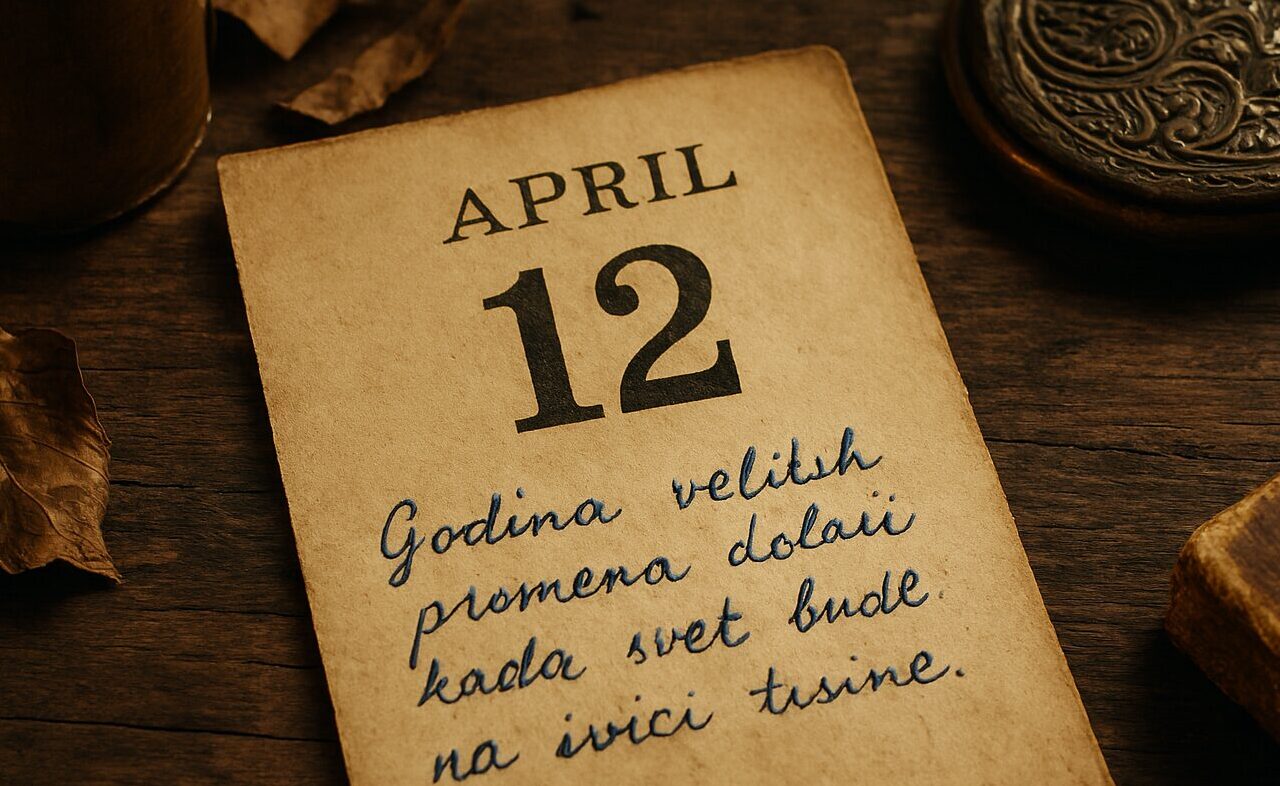 APRIL
12
Godina velitsh
promena dolaii
kada svet bude
na ivici tisine.